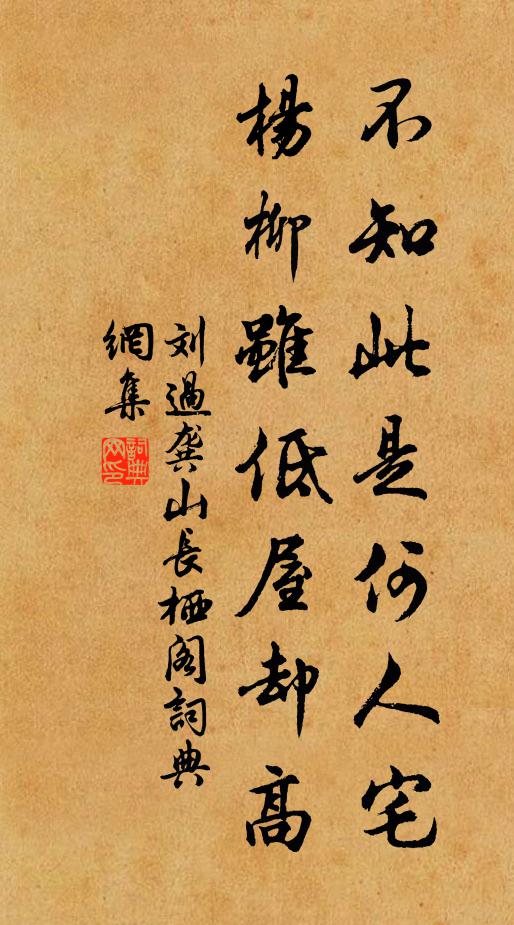 不知此是何人宅
楊柳雖低屋却高
刘過龚山長栖阁詞典
網集
詞典網印